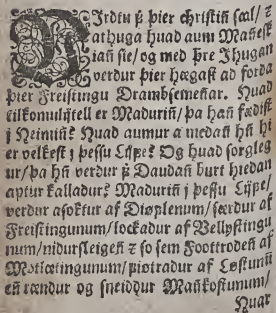 Irdtu þ þier christiñ sæl/ ⁊
athuga huad aum Mañesk
iañ sie/ og med þre Ihugan
verdur þier hægast ad forda
þier Freistingu Drambsemeñar. Huad
eilkomuligtell er Maduriñ/ þa hañ fædist
i Heimiñ? Huad aumur a medañ hñ hi
er velkest i þessu Lijfe? Og huad sorgleg
ur/ þa hñ verdur þ Daudañ burt hiedan
aptur kalladur? Maduriñ i þessu Lijfe/
verdur asoktur af Diøplenum/ særdur af
Freistingunum/ lockadur af Vellystingu
num/ nidursleigeñ ⁊ so sem Foottrodeñ af
Motlætingunum/ piotradur af Løstunū
eñ rændur og sneiddur Mañkostunum/
Huar